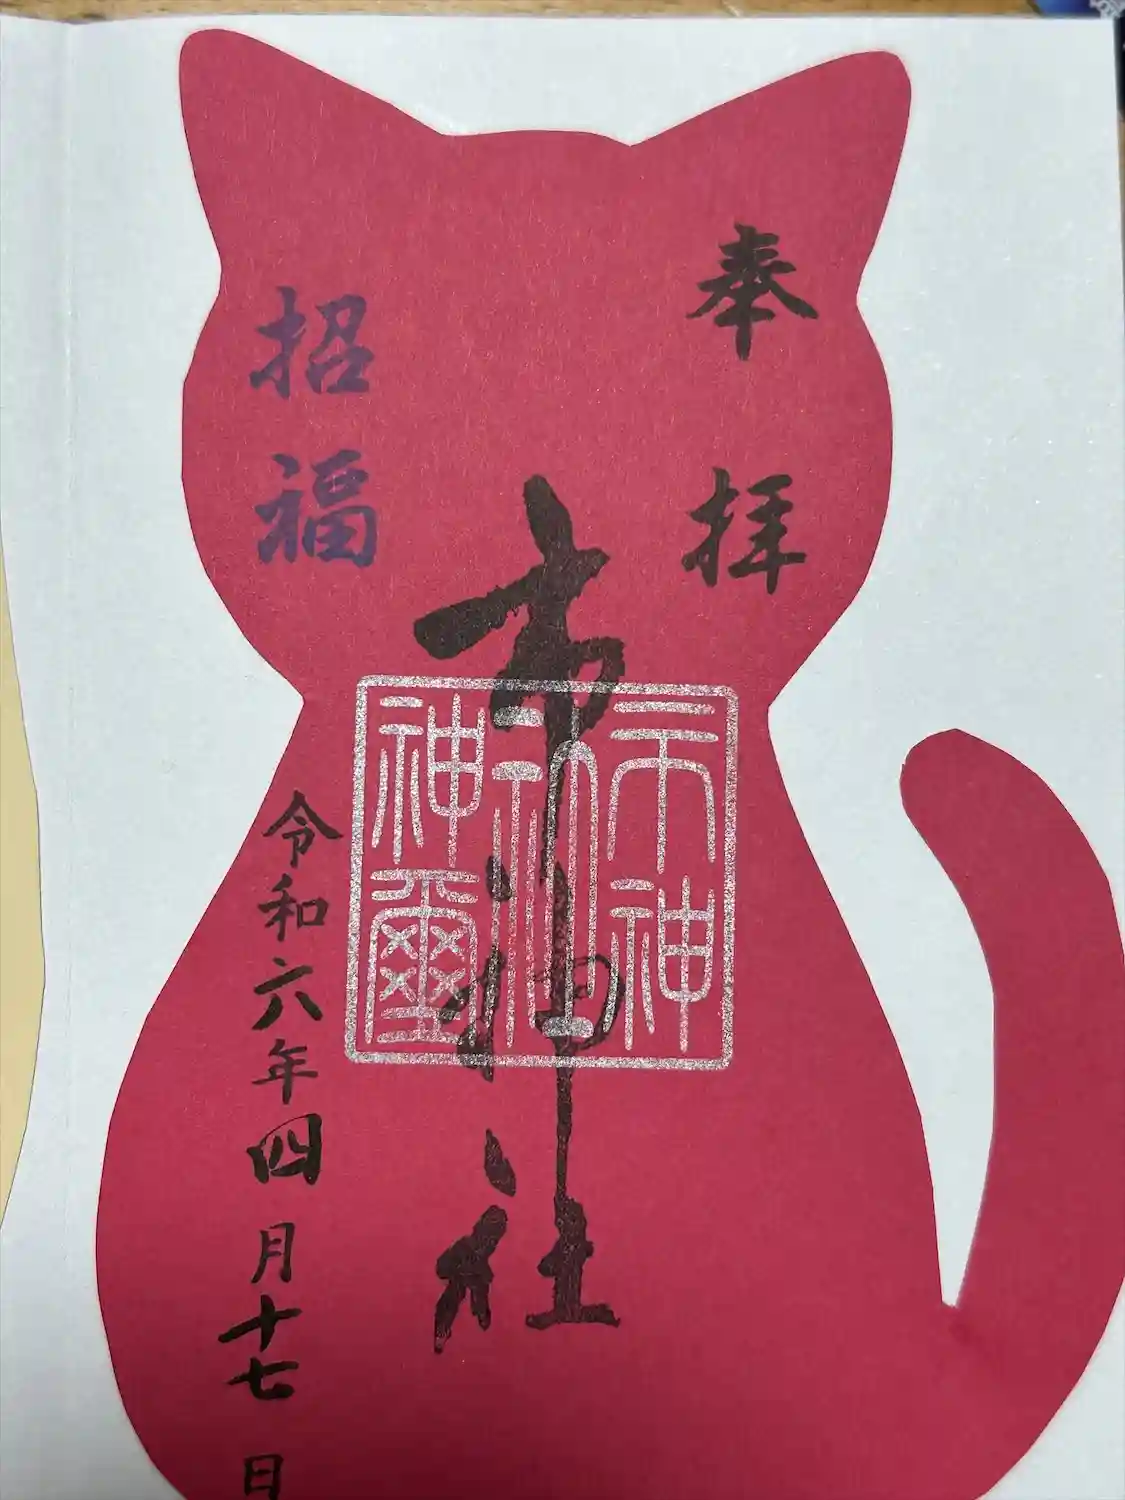 奉拝
市神社
市神
社
神璽
招福
令和六年四月十七日